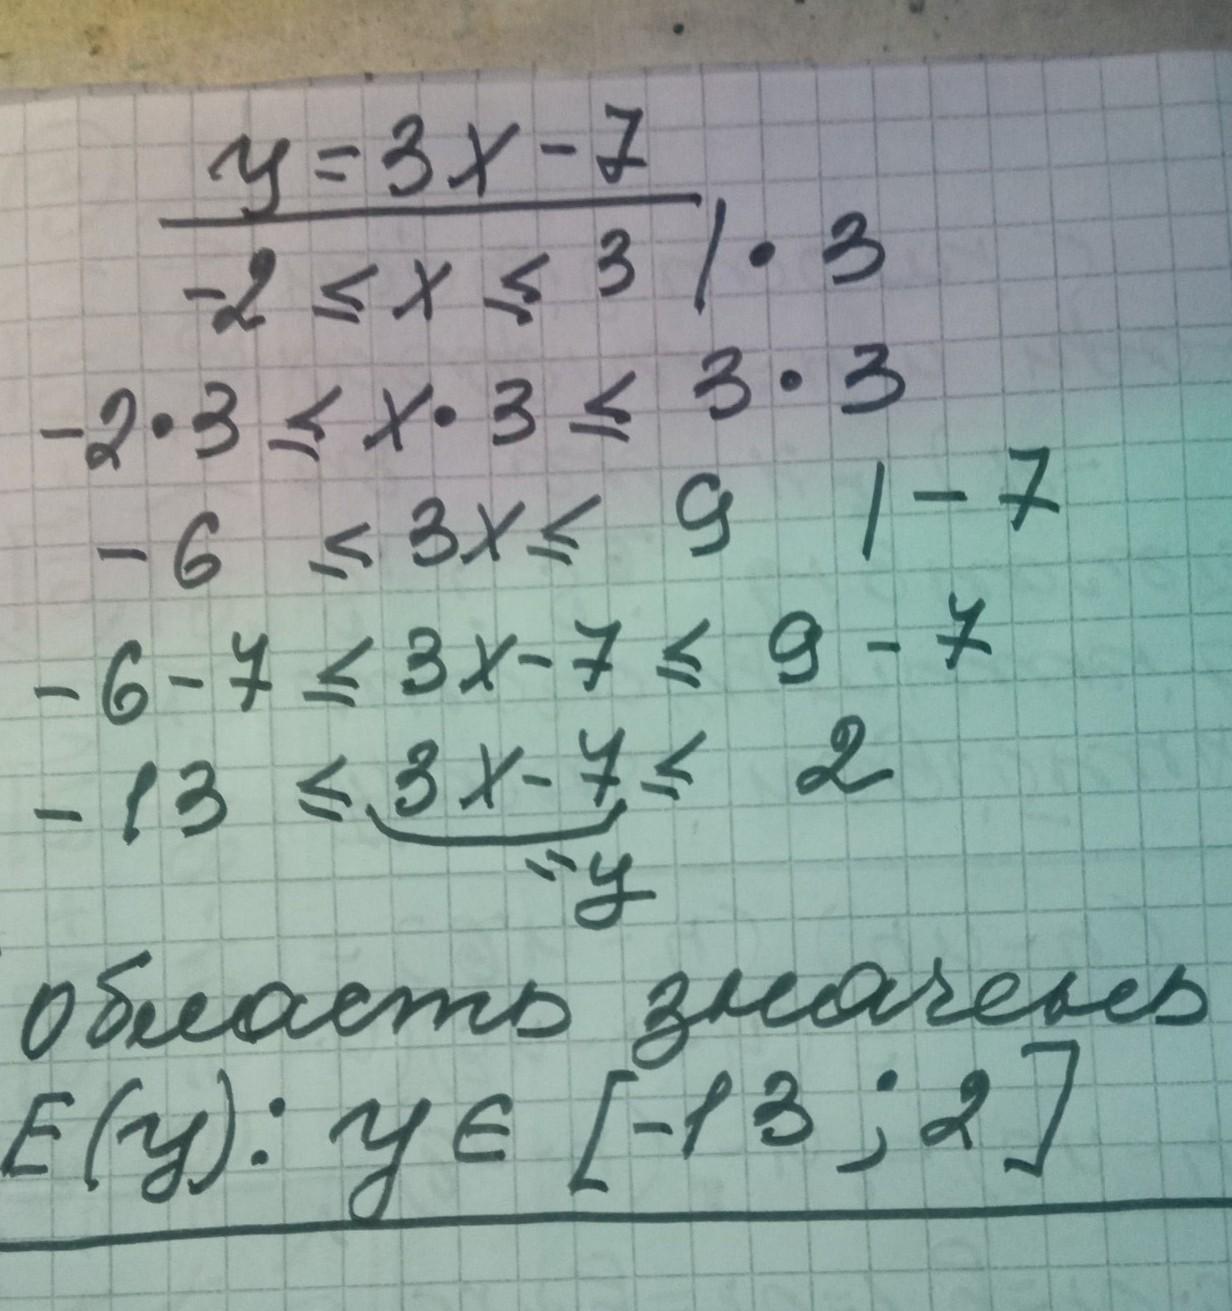 y = 3x - 7
-2 ≤ x ≤ 3 | · 3
-2 · 3 ≤ x · 3 ≤ 3 · 3
-6 ≤ 3x ≤ 9 | - 7
-6 - 7 ≤ 3x - 7 ≤ 9 - 7
-13 ≤ 3x - 7 ≤ 2
= y
область значень
E(y): y ∈ [-13 ; 2]